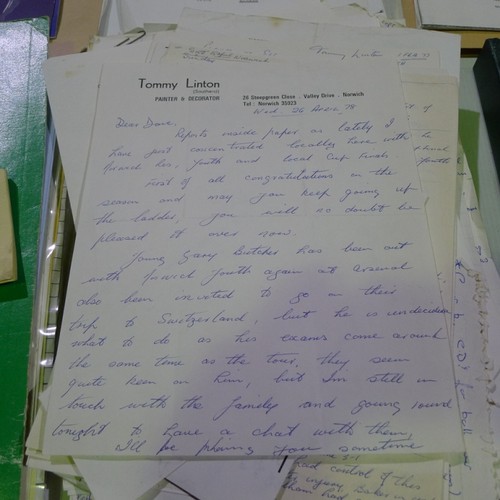 Tommy Linton
PAINTER & DECORATOR
26 Steepgreen Close . Valley Drive . Norwich
Tel: Norwich 35023
Wed 26 April 78
Dear Dave,
Reports inside paper as lately I
have just concentrated locally here with
Norwich Res, Youth and local Cup Finals
First of all congratulations on the
season and may you keep going up
the ladder, you will no doubt be
pleased it over now.
Young Gary Butcher has been out
with Norwich Youth again at Arsenal
also been invited to go on their
trip to Switzerland, but he is undecided
what to do as his exams come around
the same time as the tour, they seem
quite keen on him, but I'm still in
touch with the family and going round
tonight to have a chat with them
I'll be phoning you sometime
Tommy Linton
had control of